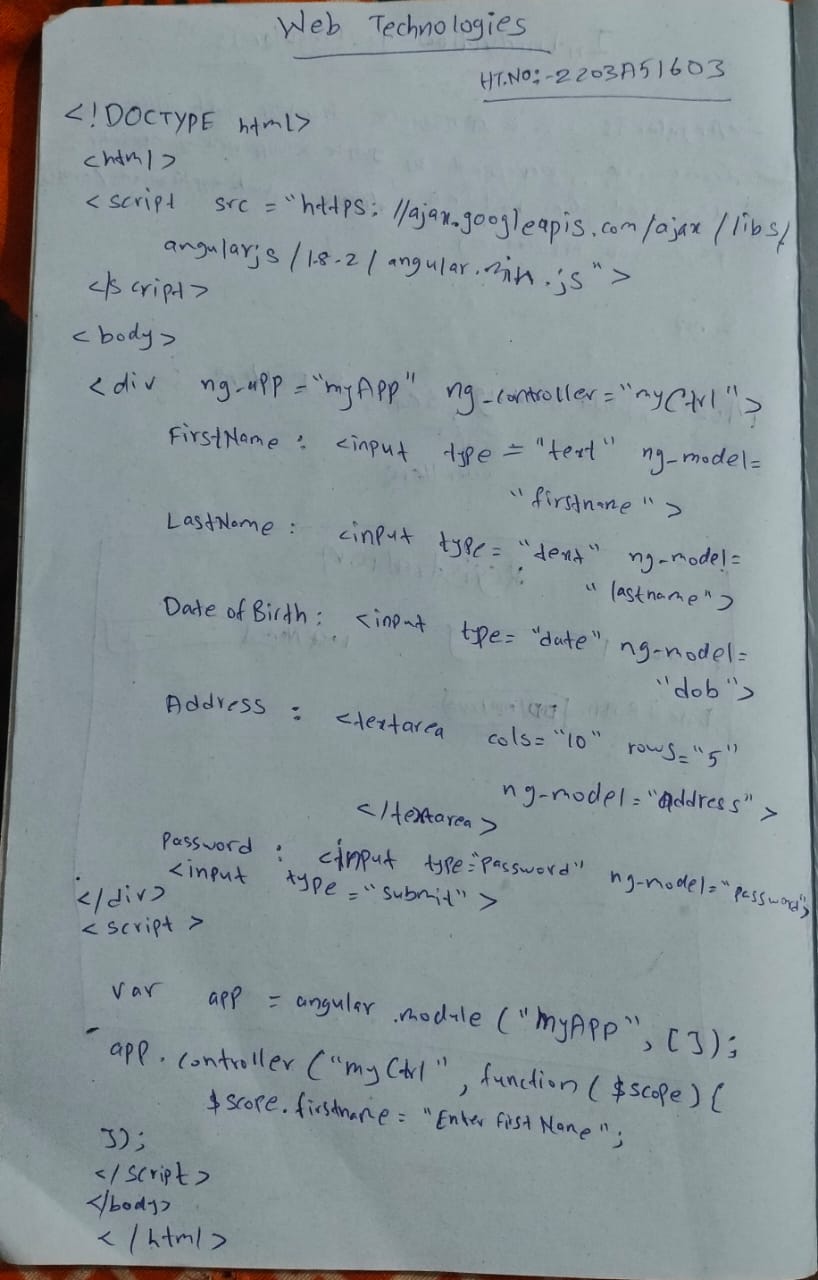 Web Technologies
HT.NO:-2203A51603
<!DOCTYPE html>
<html>
<script src = "https://ajax.googleapis.com/ajax/libs/
angularjs/1.8.2/angular.min.js">
</script>
<body>
<div ng-app = "myApp" ng-controller = "myCtrl">
FirstName : <input type = "text" ng-model=
"firstname">
LastName : <input type = "text" ng-model=
"lastname">
Date of Birth : <input type= "date" ng-model=
"dob">
Address : <textarea cols= "10" rows= "5"
ng-model= "address">
</textarea>
Password : <input type="password" ng-model="password">
<input type = "submit">
</div>
<script>
var app = angular.module ("myApp", []);
app.controller ("myCtrl", function ($scope) {
$scope.firstname = "Enter First Name";
});
</script>
</body>
</html>